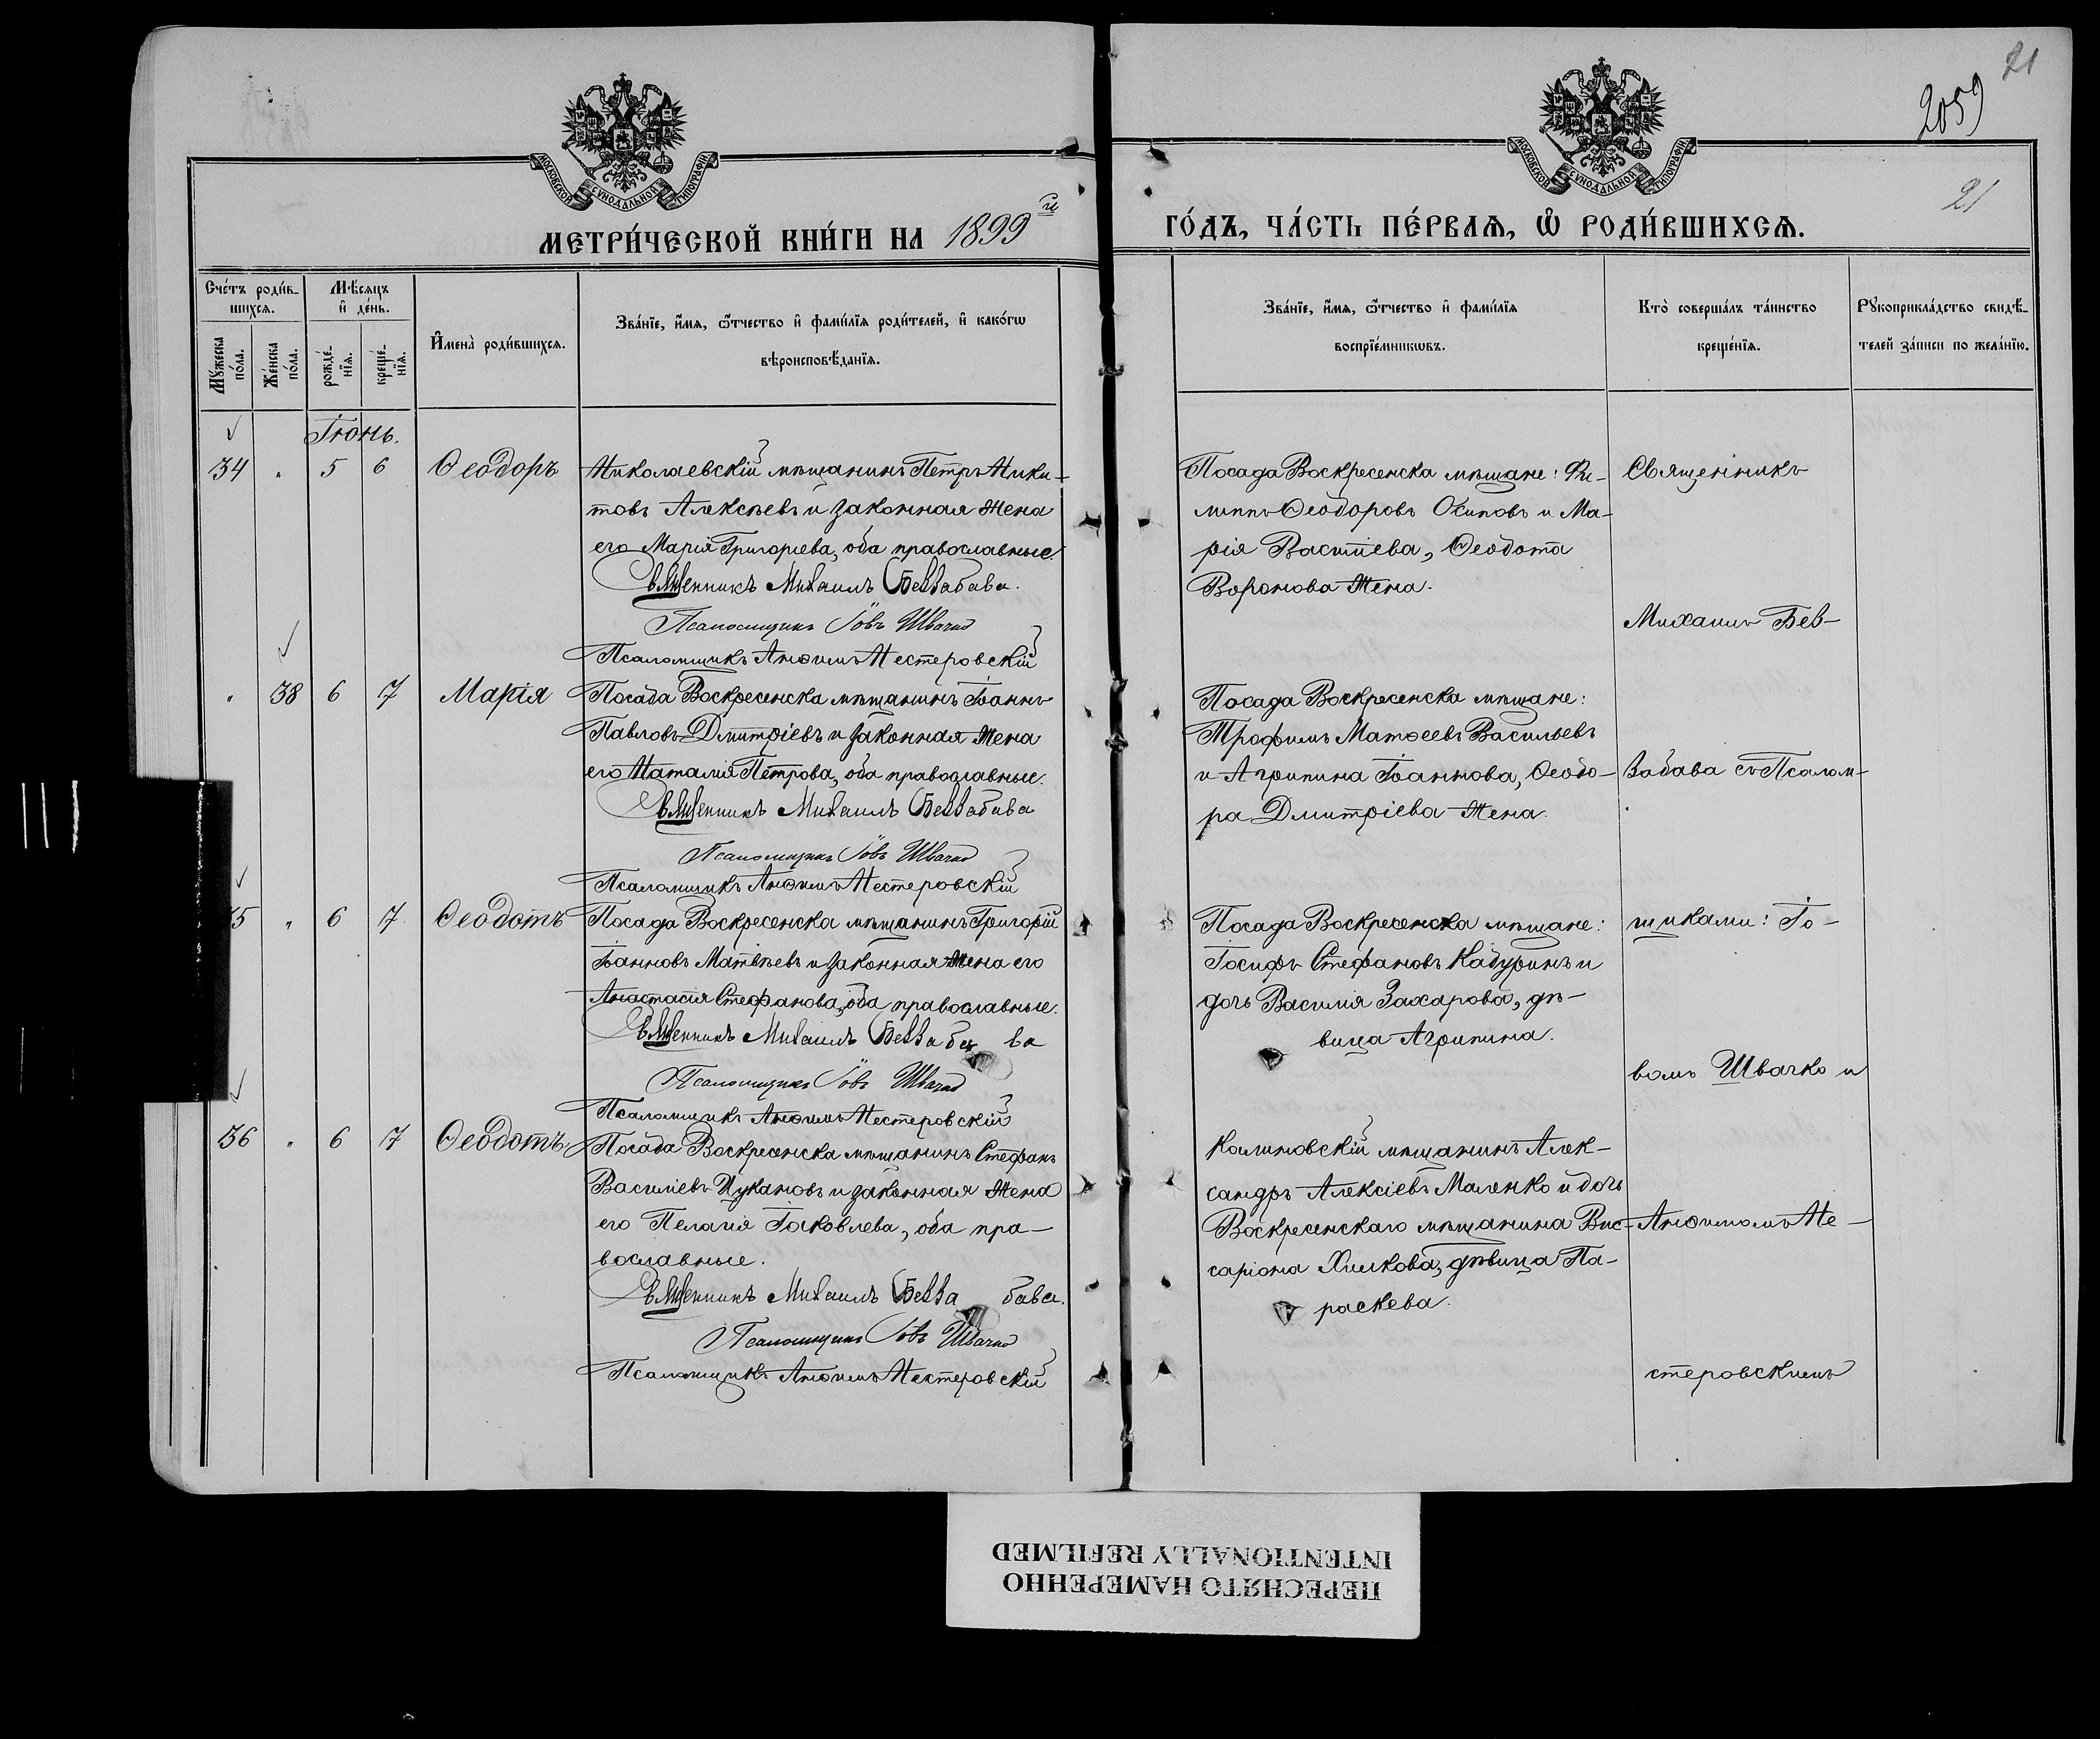 21
2059
МОСКОВСКОЙ СѴНОДАЛЬНОЙ ТИПОГРАФІИ
МОСКОВСКОЙ СѴНОДАЛЬНОЙ ТИПОГРАФІИ
21
МЕТРИ́ЧЕСКОЙ КНИ́ГИ НА 1899й
ГО́ДЪ, ЧА́СТЬ ПЕ́РВАѦ, Ѿ РОДИ́ВШИХСѦ.
Сче́тъ роди́в-
шихсѧ.
Мѣ́сѧцъ
и҆ де́нь.
Мꙋ́жеска по́ла.
Же́нска по́ла.
рожде́-нїѧ.
креще́-нїѧ.
И҆мена̀ роди́вшихсѧ.
Зва́нїе, и҆́мѧ, ѻ҆́тчество и҆ фами́лїѧ роди́телей, и҆ како́гѡ
вѣроисповѣ́данїѧ.
Зва́нїе, и҆́мѧ, ѻ҆́тчество и҆ фами́лїѧ
воспрїе́мникѡвъ.
Кто̀ соверша́лъ та́инство
креще́нїѧ.
Рꙋкоприкла́дство свидѣ́-
телей за́писи по жела́нїю.
Іюнь.
34 " 5 6 Ѳеодоръ
Николаевскій мѣщанинъ Петръ Ники-
товъ Алексѣевъ и законная жена
его Марія Григоріева, оба православные.
Священникъ Михаилъ Беззабава.
Псаломщикъ Іовъ Швачко
Псаломщикъ Анѳимъ Нестеровскій
Посада Воскресенска мѣщане: Фи-
липпъ Ѳеодоровъ Осиповъ и Ма-
рія Васліева, Ѳеодота
Воронова жена.
Священникъ
Михаилъ Без-
" 38 6 7 Марія
Посада Воскресенска мѣщанинъ Іоаннъ
Павловъ Дмитріевъ и законная жена
его Наталія Петрова, оба православные.
Священникъ Михаилъ Беззабава
Псаломщикъ Іовъ Швачко
Псаломщикъ Анѳимъ Нестеровскій
Посада Воскресенска мѣщане:
Трофимъ Матѳеевъ Васильевъ
и Агрипина Іоаннова, Ѳеодо-
ра Дмитріева жена.
забава съ Псалом-
35 " 6 7 Ѳеодотъ
Посада Воскресенска мѣщанинъ Григорій
Іоанновъ Матвѣевъ и законная жена его
Анастасія Стефанова, оба православные.
Священникъ Михаилъ Беззабава
Псаломщикъ Іовъ Швачко
Псаломщикъ Анѳимъ Нестеровскій
Посада Воскресенска мѣщане:
Іосифъ Стефановъ Кадуринъ и
дочь Василія Захарова, дѣ-
вица Агрипина.
щиками: Іо-
вомъ Швачко и
36 " 6 7 Ѳеодотъ
Посада Воскресенска мѣщанинъ Стефанъ
Василіевъ Цукановъ и законная жена
его Пелагія Іаковлева, оба пра-
вославные.
Священникъ Михаилъ Беззабава.
Псаломщикъ Іовъ Швачко
Псаломщикъ Анѳимъ Нестеровскій
Калиновскій мѣщанинъ Алек-
сандръ Алексіевъ Маленко и дочь
Воскресенскаго мѣщанина Вис-
саріона Хилкова, дѣвица Па-
раскева.
Анѳимомъ Не-
стеровскимъ
ПЕРЕСНЯТО НАМЕРЕННО
INTENTIONALLY REFILMED